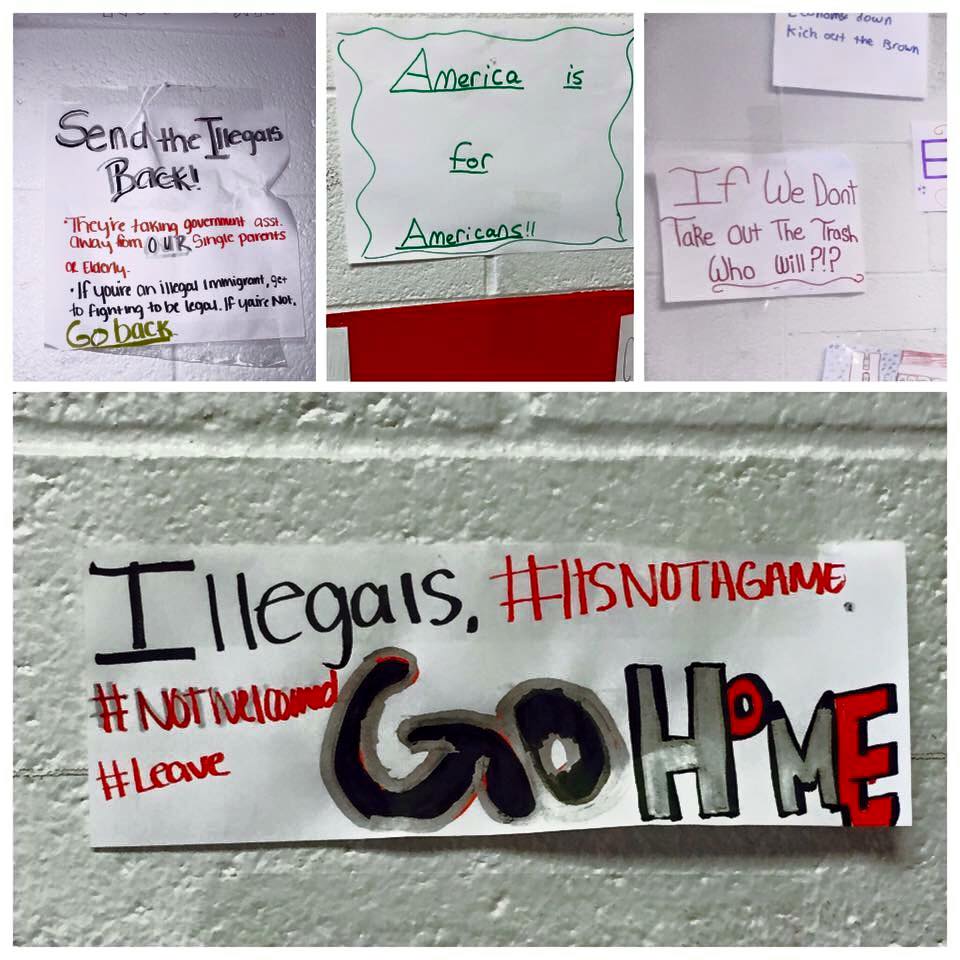 Send the Illegals
Back!
• They're taking government asst.
away from OUR Single parents
or Elderly.
• If you're an illegal immigrant, get
to fighting to be legal. If you're Not,
Go back
America is
for
Americans!!
down
Kick out the Brown
If We Dont
Take out The Trash
Who Will?!?
E
Illegals, #ITSNOTAGAME
#NOTWelcomed
#Leave
GO HOME